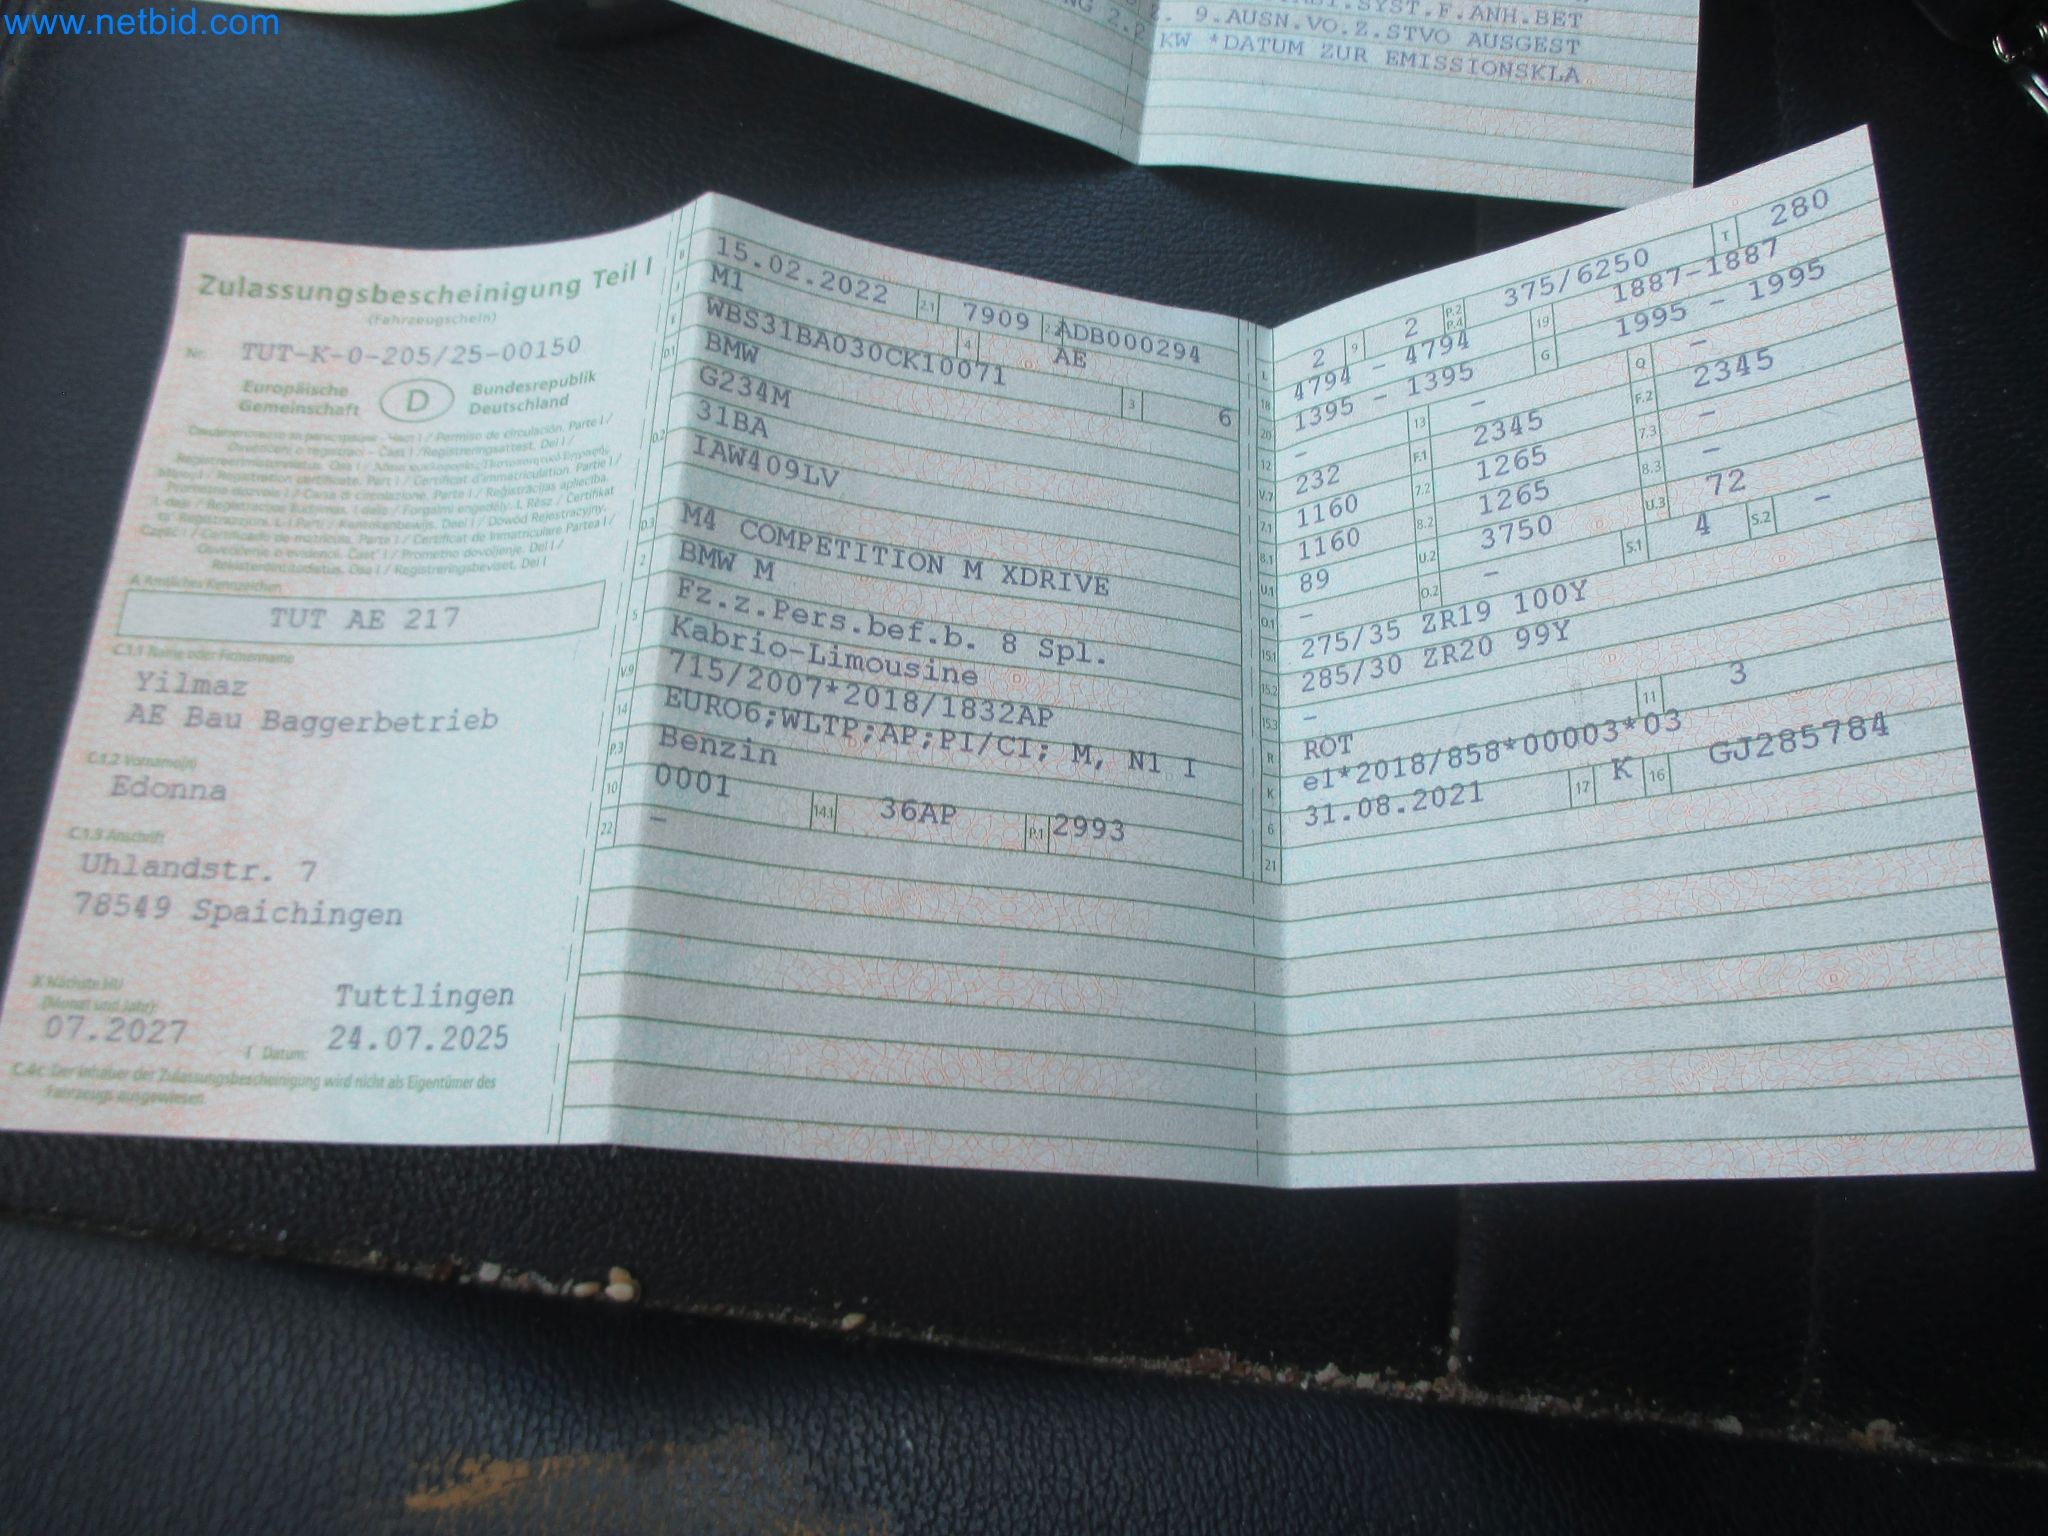 www.netbid.com
SYST.F.ANH.BET
9.AUSN.VO.Z.STVO AUSGEST
KW *DATUM ZUR EMISSIONSKLA
Zulassungsbescheinigung Teil I
(Fahrzeugschein)
Nr. TUT-K-0-205/25-00150
Europäische Gemeinschaft
D
Bundesrepublik Deutschland
A Amtliches Kennzeichen
TUT AE 217
C.1.1 Name oder Firmenname
Yilmaz
AE Bau Baggerbetrieb
C.1.2 Vorname(n)
Edonna
C.1.3 Anschrift
Uhlandstr. 7
78549 Spaichingen
X Nächste HU
(Monat und Jahr):
07.2027
Tuttlingen
I Datum: 24.07.2025
C.4c Der Inhaber der Zulassungsbescheinigung wird nicht als Eigentümer des
Fahrzeugs ausgewiesen.
B 15.02.2022 2.1 7909 2.2 ADB000294
J M1 4 AE
E WBS31BA030CK10071 3 6
D.1 BMW
G234M
D.2 31BA
IAW409LV
D.3 M4 COMPETITION M XDRIVE
2 BMW M
5 Fz.z.Pers.bef.b. 8 Spl.
Kabrio-Limousine
V.9 715/2007*2018/1832AP
14 EURO6;WLTP;AP;PI/CI; M, N1 I
P.3 Benzin
10 0001 14.1 36AP P.1 2993
22 -
L 2 9 2 P.2 P.4 375/6250 T 280
18 4794 - 4794 19 1887-1887
20 1395 - 1395 G 1995 - 1995
12 - 13 - Q -
V.7 232 F.1 2345 F.2 2345
7.1 1160 7.2 1265 7.3 -
8.1 1160 8.2 1265 8.3 -
U.1 89 U.2 3750 U.3 72
O.1 - O.2 - S.1 4 S.2 -
15.1 275/35 ZR19 100Y
15.2 285/30 ZR20 99Y
15.3 -
R ROT 11 3
K e1*2018/858*00003*03
6 31.08.2021 17 K 16 GJ285784
21